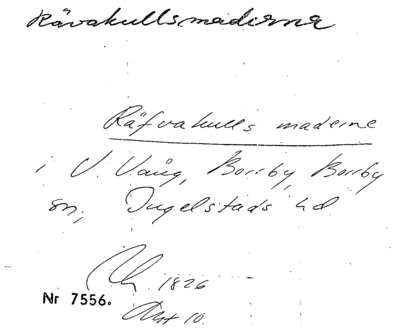 Rävakullsmaderna
Räfvakulls maderne
i V. Vång, Borrby, Borrby
sn, Ingelstads hd
1826
Nr 7556.
Akt 10.